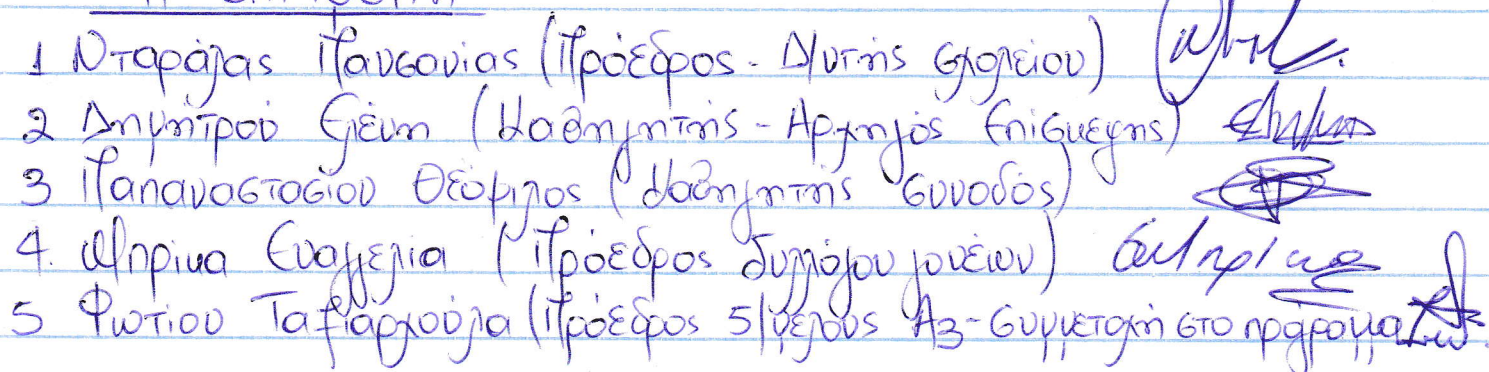 1 Νταράλας Παυσανίας (Πρόεδρος - Δ/ντής σχολείου)
2 Δημητρού Ελένη (Καθηγητής - Αρχηγός Επίσκεψης)
3 Παπαναστασίου Θεόφιλος (Καθηγητής συνοδός)
4. Μπρίκα Ευαγγελία (Πρόεδρος Συλλόγου γονέων)
5 Φωτίου Ταξιαρχούλα (Πρόεδρος 5/μελούς Α3 - Συμμετοχή στο πρόγραμμα)